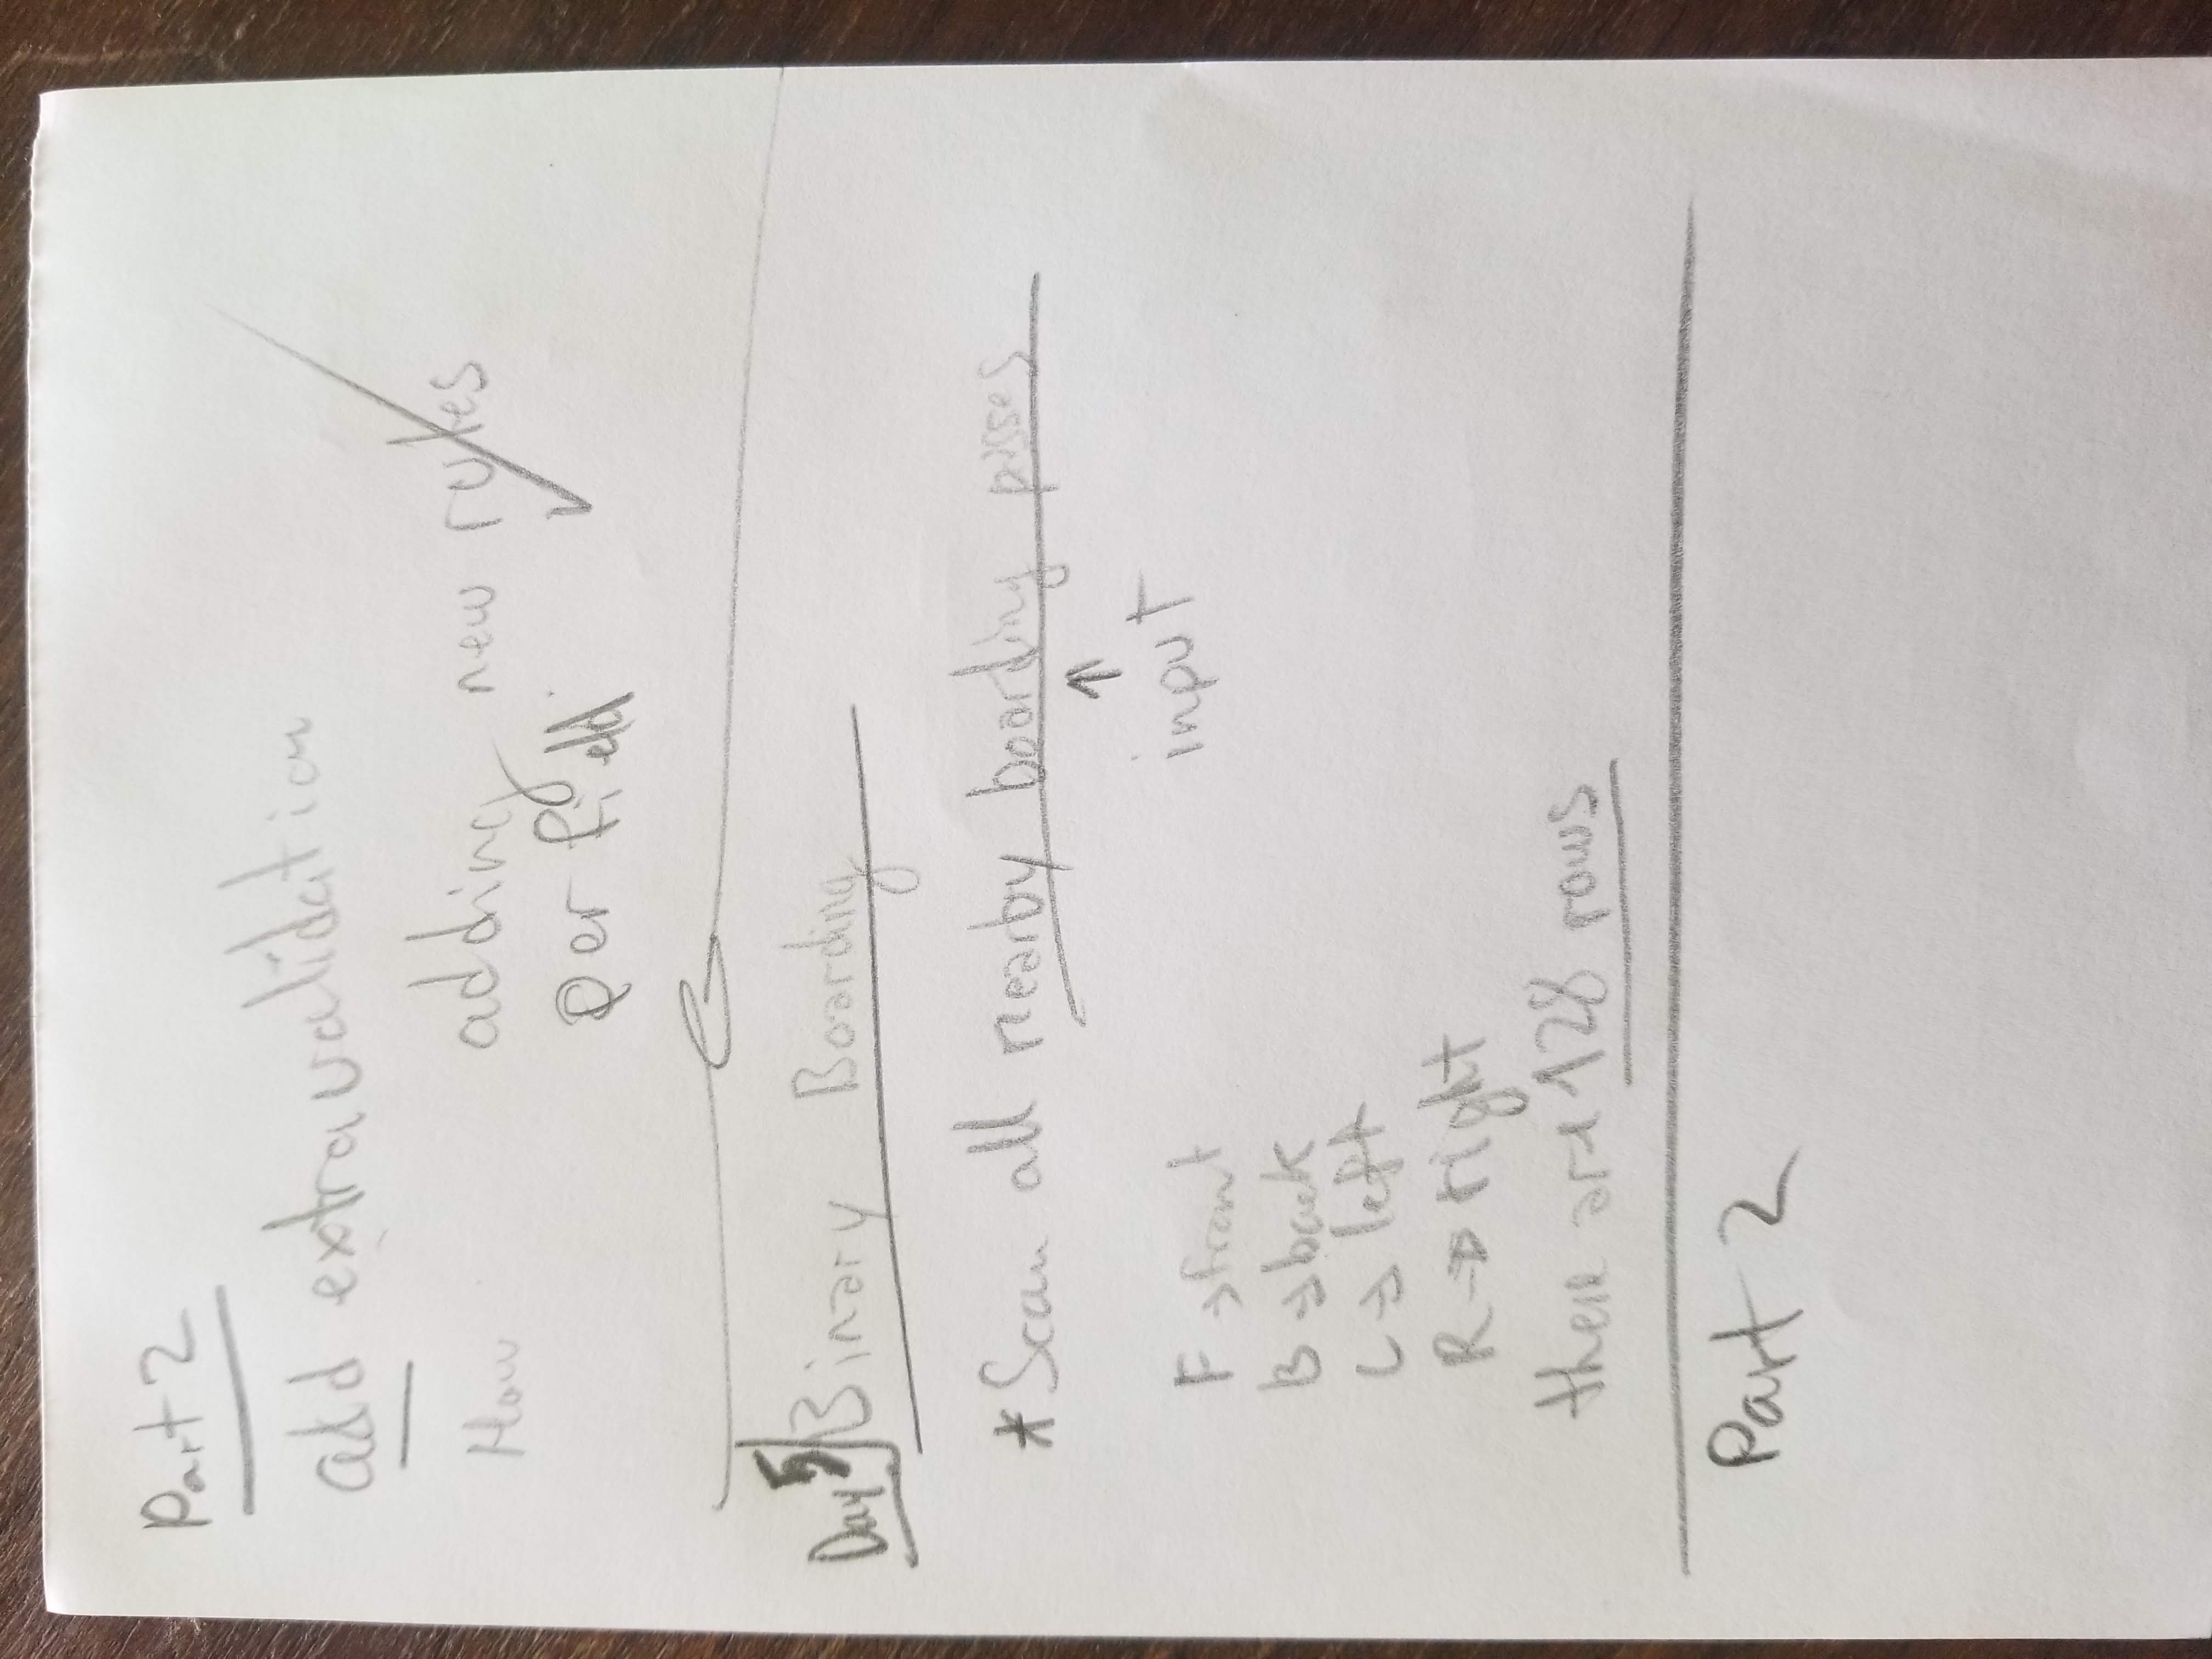 Part 2
add extra validation
How adding new rules
per field
Day 5 Binary Boarding
*Scan all nearby boarding passes
↑
input
F → front
B → back
L → left
R → right
there are 128 rows
Part 2